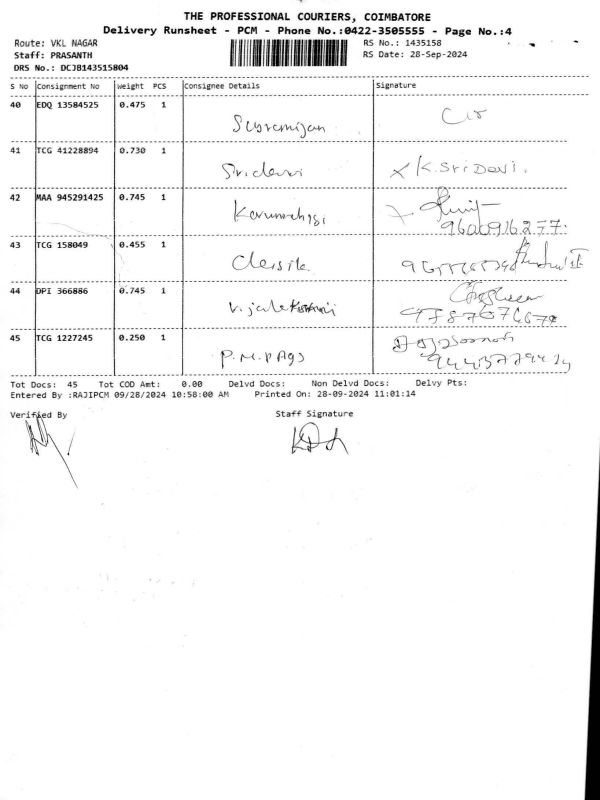 THE PROFESSIONAL COURIERS, COIMBATORE
Delivery Runsheet - PCM - Phone No.:0422-3505555 - Page No.:4
Route: VKL NAGAR RS No.: 1435158
Staff: PRASANTH RS Date: 28-Sep-2024
DRS No.: DCJB143515804
S No Consignment No Weight PCS Consignee Details Signature
40 EDQ 13584525 0.475 1
41 TCG 41228894 0.730 1
Sridevi X K.SriDevi.
42 MAA 945291425 0.745 1
43 TCG 158049 0.455 1
44 DPI 366886 0.745 1
45 TCG 1227245 0.250 1
P.M.P Ags
Tot Docs: 45 Tot COD Amt: 0.00 Delvd Docs: Non Delvd Docs: Delvy Pts:
Entered By :RAJIPCM 09/28/2024 10:58:00 AM Printed On: 28-09-2024 11:01:14
Verified By Staff Signature